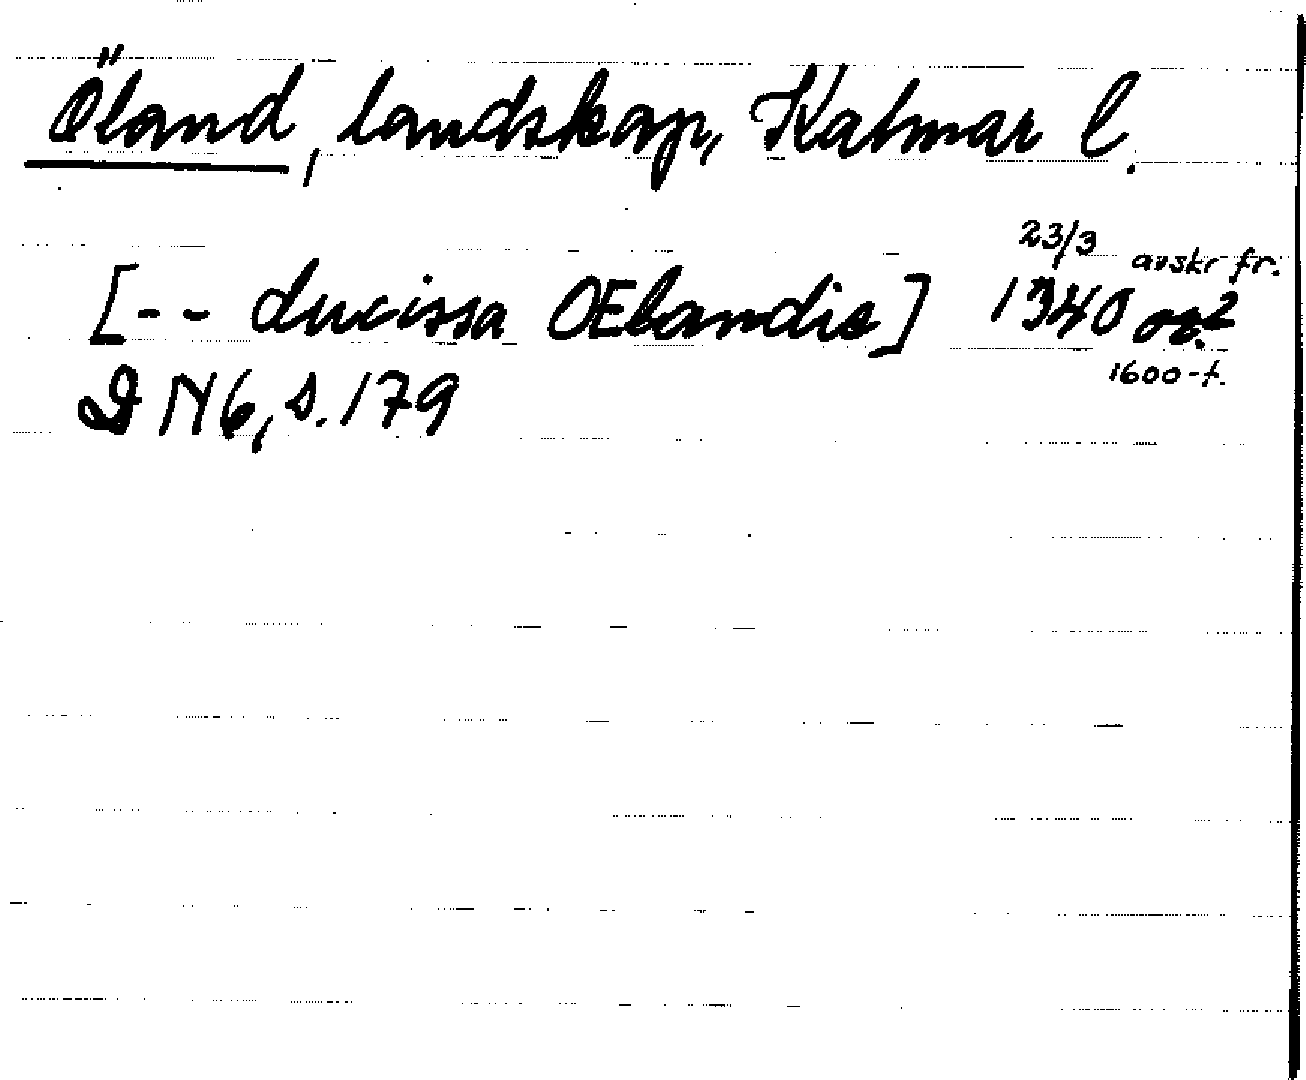 Öland, landskap, Kalmar l.
[-- ducissa OElandie] 23/3 1340 avskr fr.
1600-t.
DN 6, s. 179